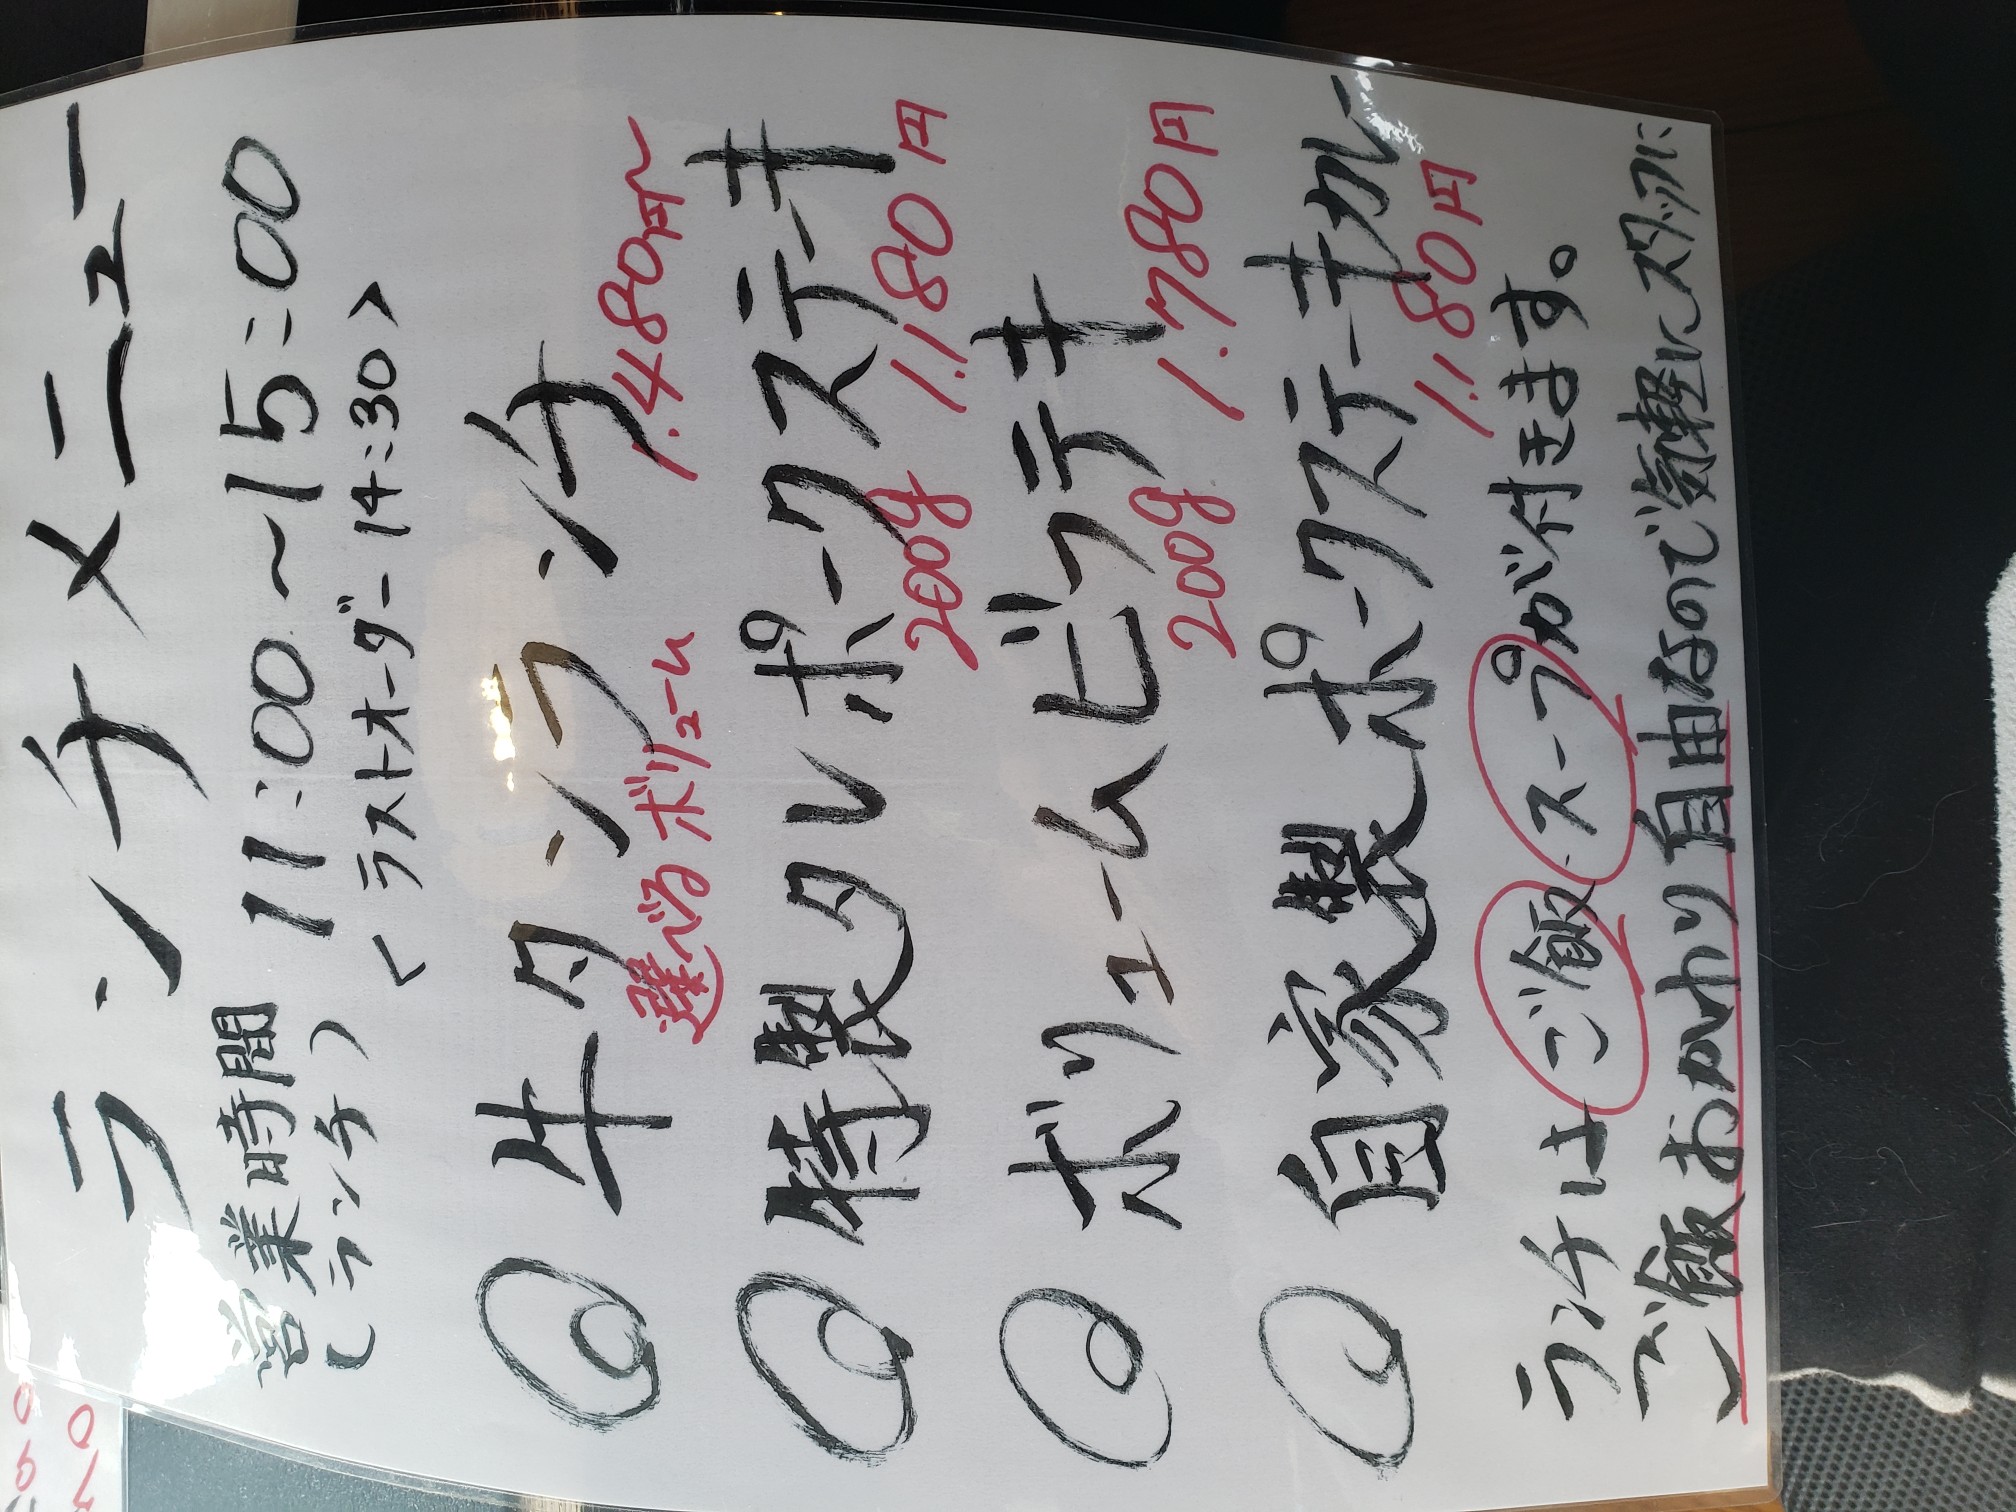 ランチメニュー
営業時間 11:00〜15:00
(ランチ) <ラストオーダー14:30>
◎牛タンランチ
選べるボリューム 1.480円〜
◎特製タレポークステーキ
200g 1.180円
◎ボリュームビフテキ
200g 1.780円
◎自家製ポークステーキカレー
1.180円
ランチはご飯・スープが付きます。
ご飯おかわり自由なのでご気軽にスタッフに